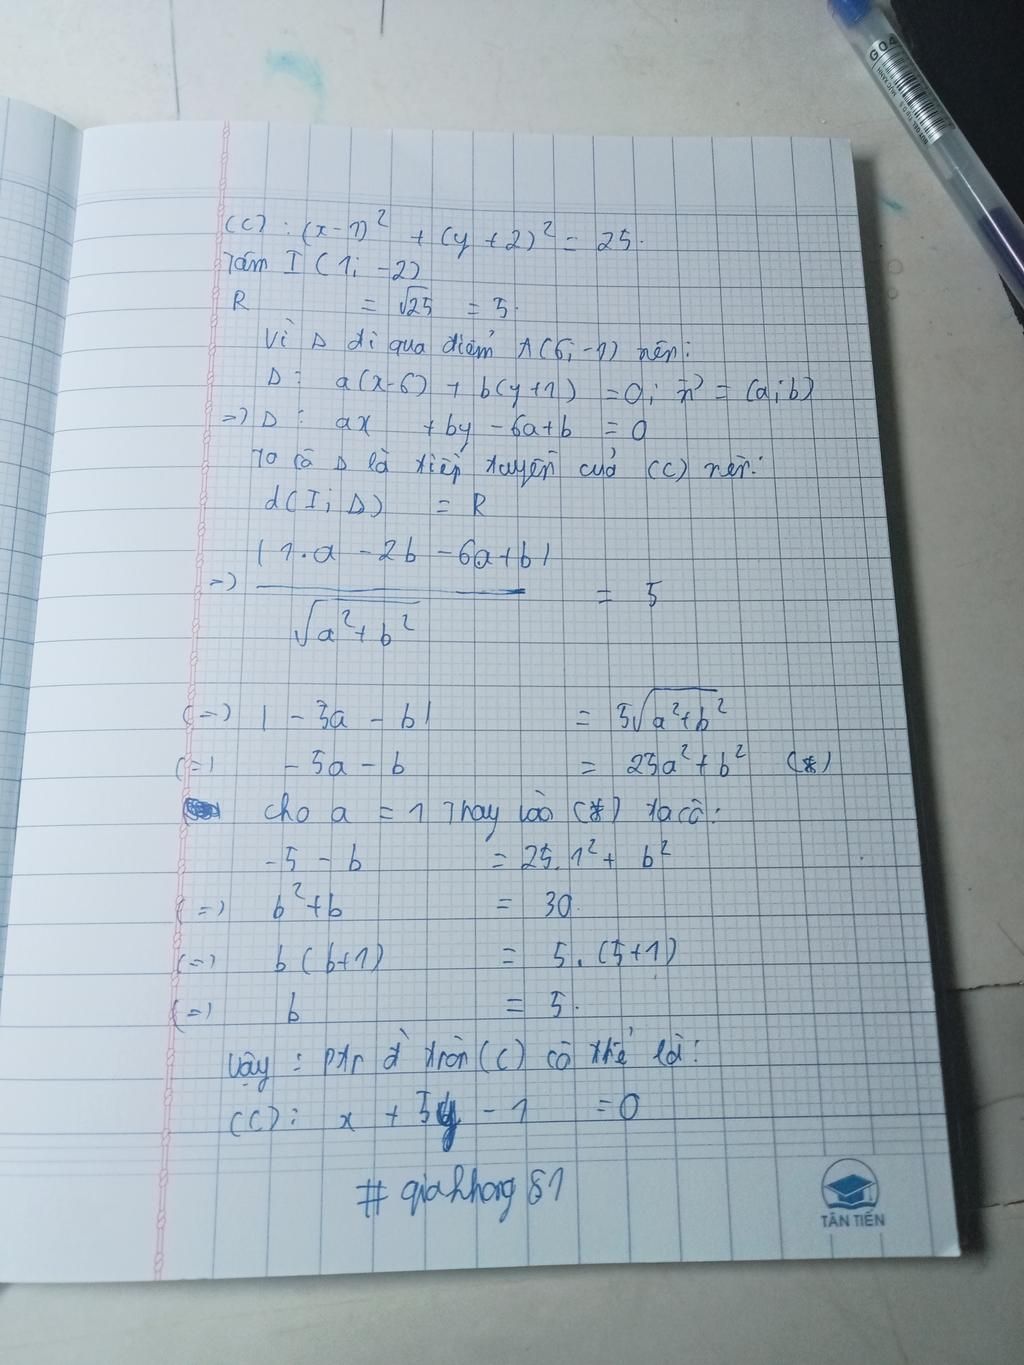 (C): (x-1)² + (y+2)² = 25.
Tâm I (1; -2)
R = √25 = 5.
Vì Δ đi qua điểm A(6; -1) nên:
Δ: a(x-6) + b(y+1) = 0; n⃗ = (a; b)
=> Δ: ax + by - 6a + b = 0
Ta có Δ là tiếp tuyến của (C) nên:
d(I; Δ) = R
=> |1.a - 2b - 6a + b| / √a²+b² = 5
(=) |-5a - b| = 5√a²+b²
(=) -5a - b = 25a² + b² (*)
Cho a = 1 Thay vào (*) ta có:
-5 - b = 25.1² + b²
(=) b² + b = 30.
(=) b(b+1) = 5.(5+1)
(=) b = 5.
Vậy: ptr đ tròn (C) có thể là:
(C): x + 5y - 1 = 0
TÂN TIẾN
G04